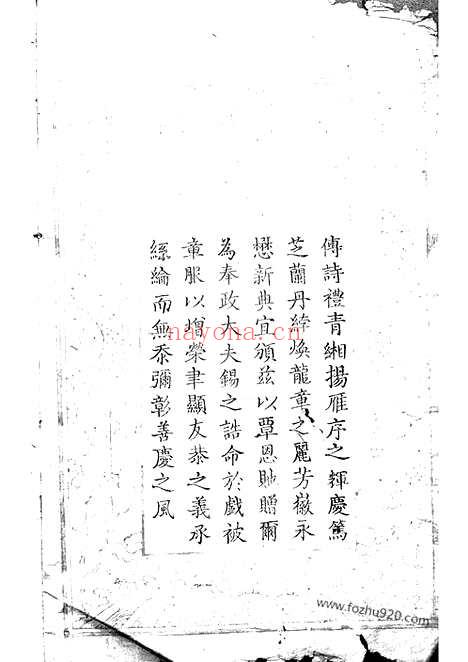 傳詩禮青緗揚雁序之輝慶篤
芝蘭丹綍煥龍章之麗芳徽永
懋新典宜頒茲以覃恩貤贈爾
為奉政大夫錫之誥命於戲被
章服以增榮聿顯友恭之義承
絲綸而無忝彌彰善慶之風
nayona.cn
www.fozhu920.com